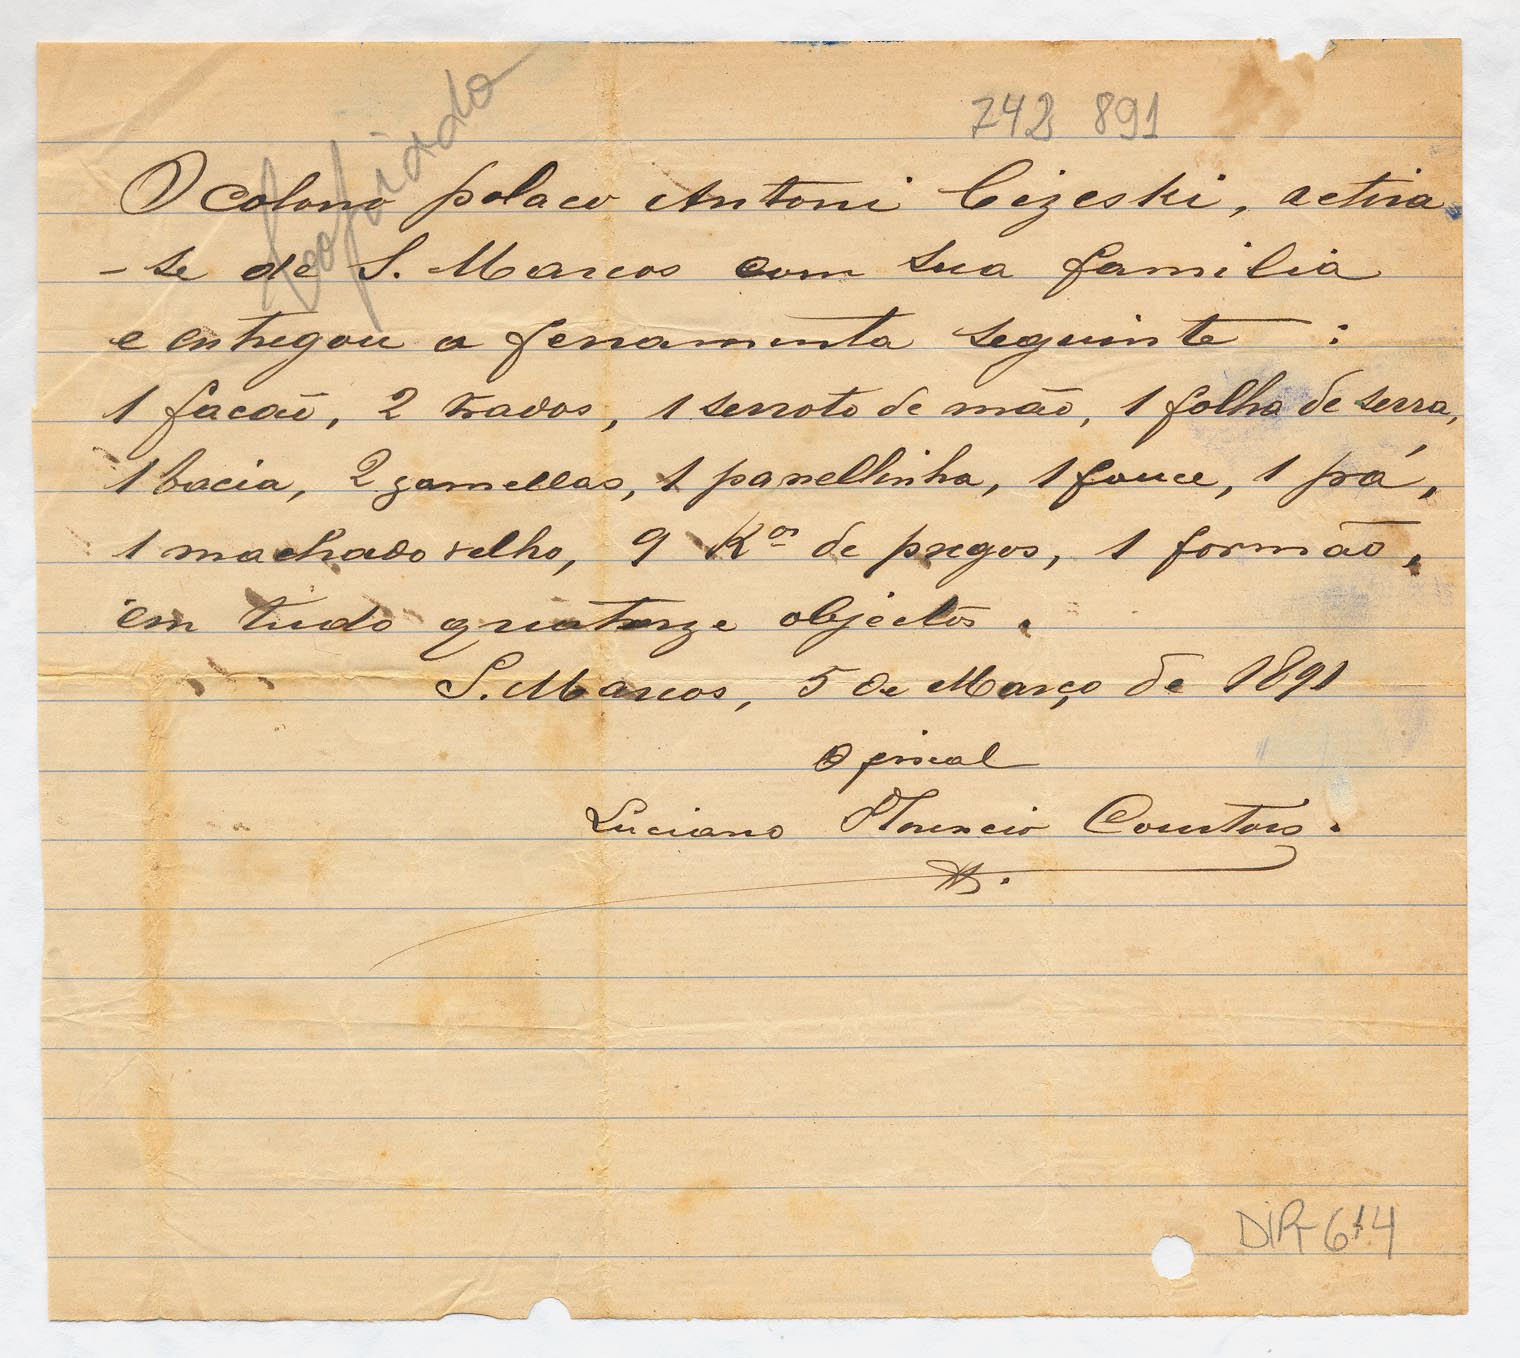 742 891
Copiado
O colono polaco Antoni Cizeski, retira
-se de S. Marcos com sua familia
e entregou a ferramenta seguinte :
1 facaõ, 2 trados, 1 serrote de mão, 1 folha de serra,
1 bacia, 2 gamellas, 1 panellinha, 1 fouce, 1 pá,
1 machado velho, 9 Kos de pregos, 1 formão,
em tudo quatorze objectos.
S. Marcos, 5 de Março de 1891
O fiscal
Luciano Florencio Courtois.
DIR 614